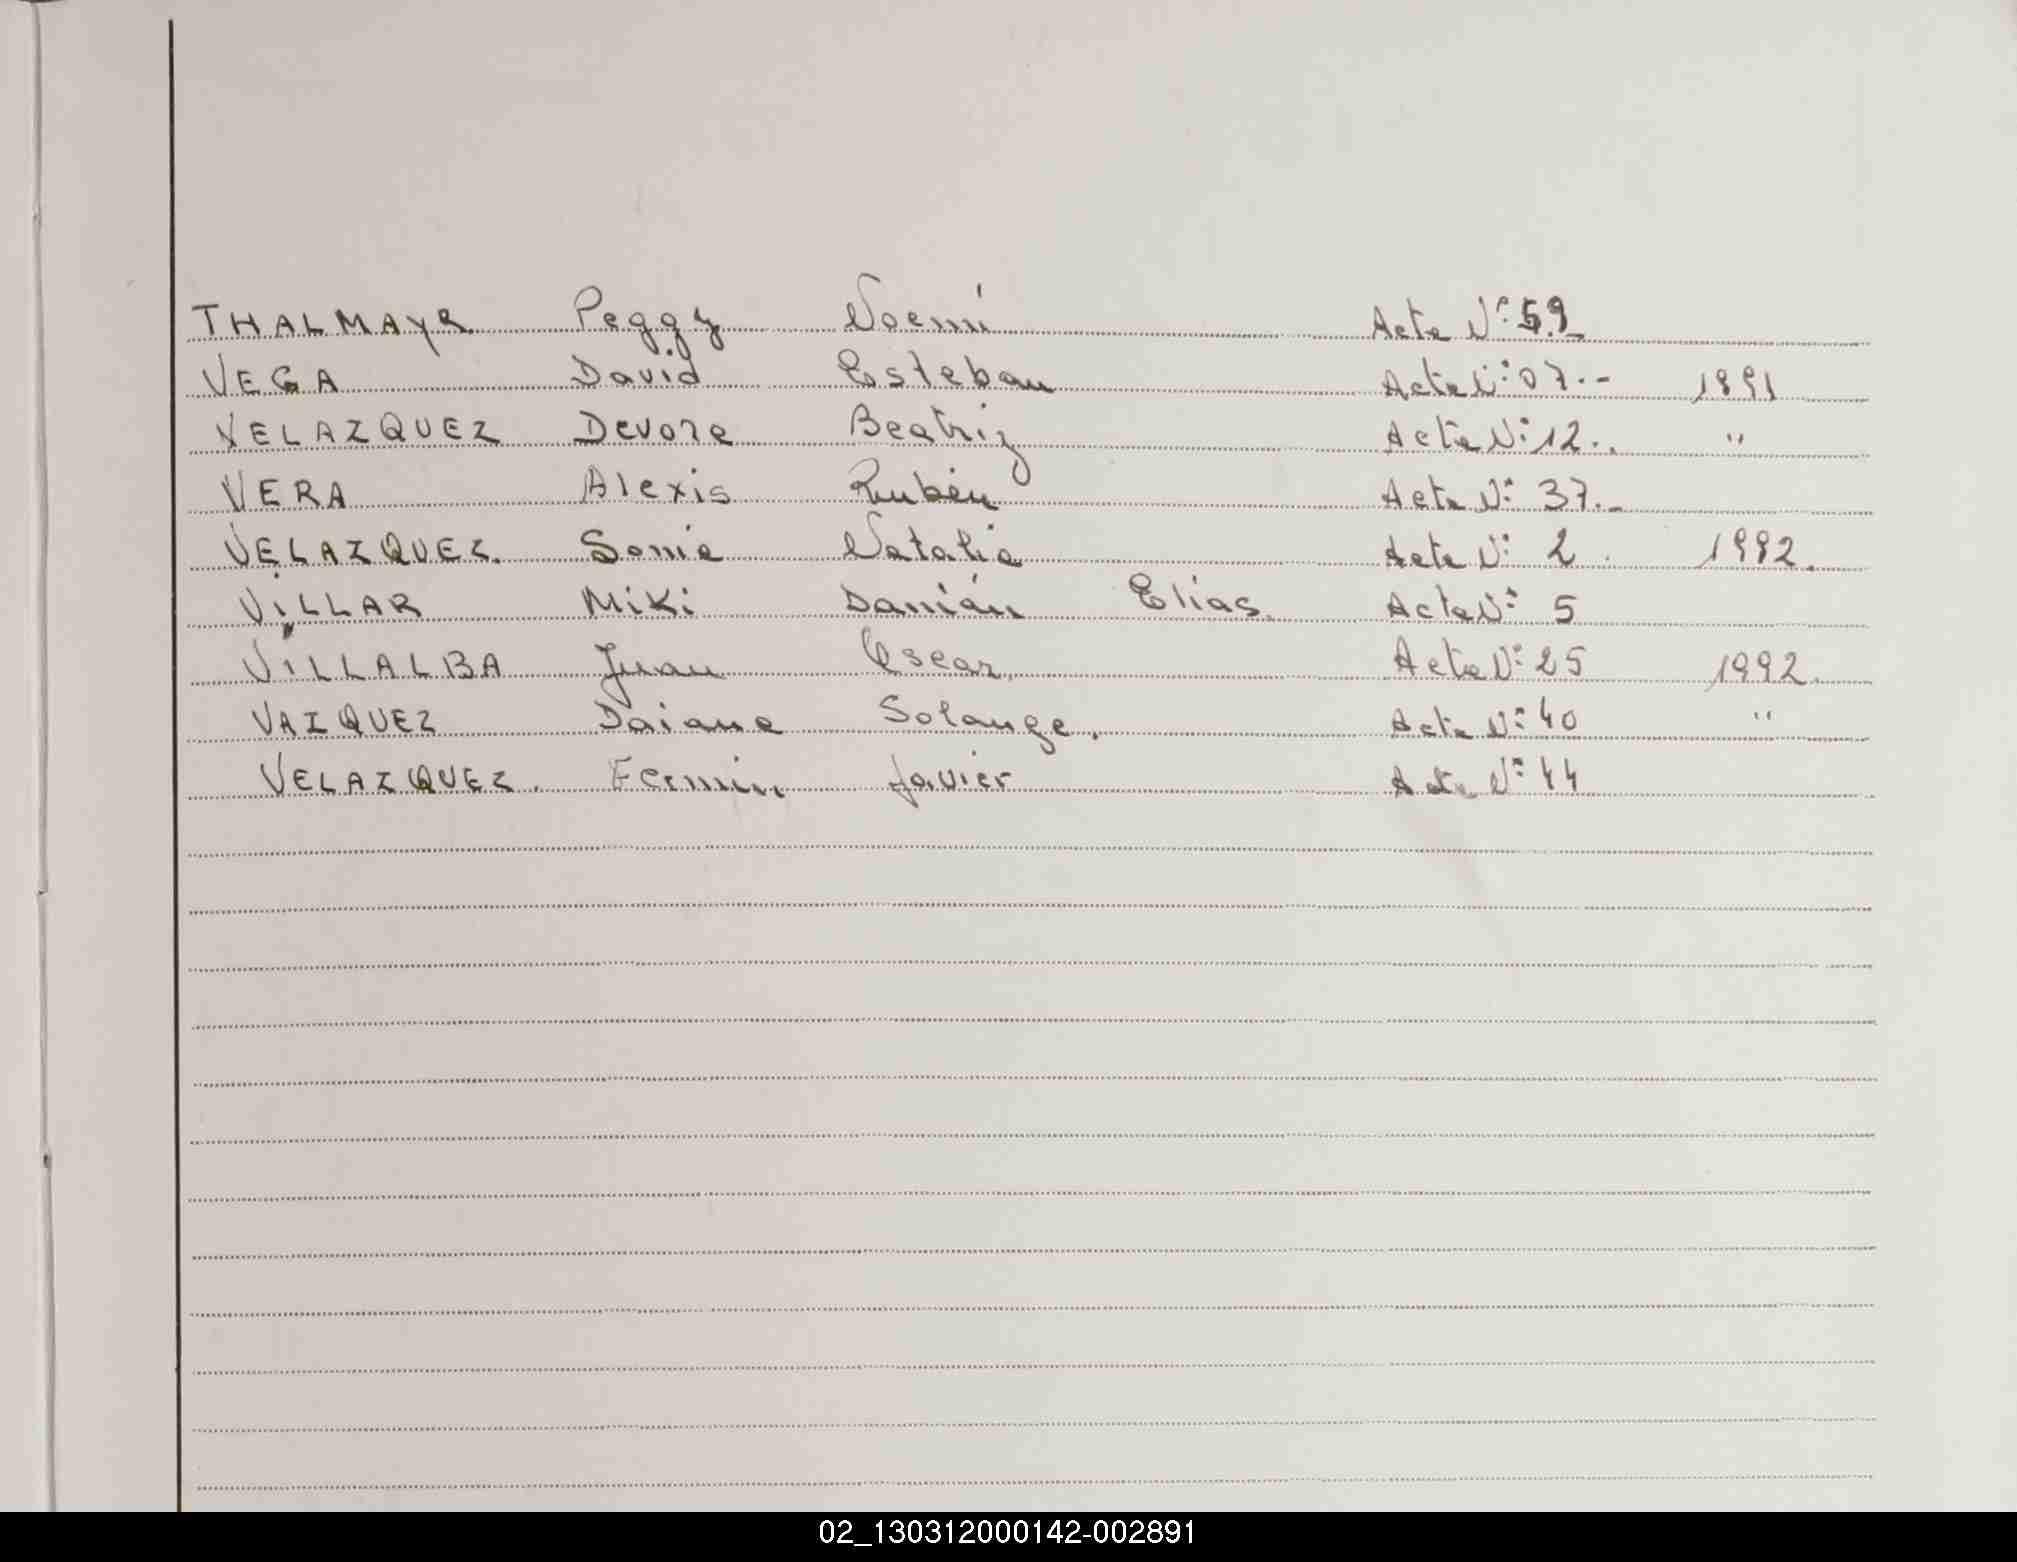 THALMAYR Peggy Noemí Acta Nº 59
VEGA David Esteban Acta Nº 07.- 1991
VELAZQUEZ Devora Beatriz Acta Nº 12. "
VERA Alexis Rubén Acta Nº 37.-
VELAZQUEZ. Sonia Natalia Acta Nº 2. 1992.
VILLAR Miki Damián Elias. Acta Nº 5
VILLALBA Juan Oscar. Acta Nº 25 1992.
VAZQUEZ Daiana Solange. Acta Nº 40 "
VELAZQUEZ. Fermin Javier Acta Nº 44
02_130312000142-002891